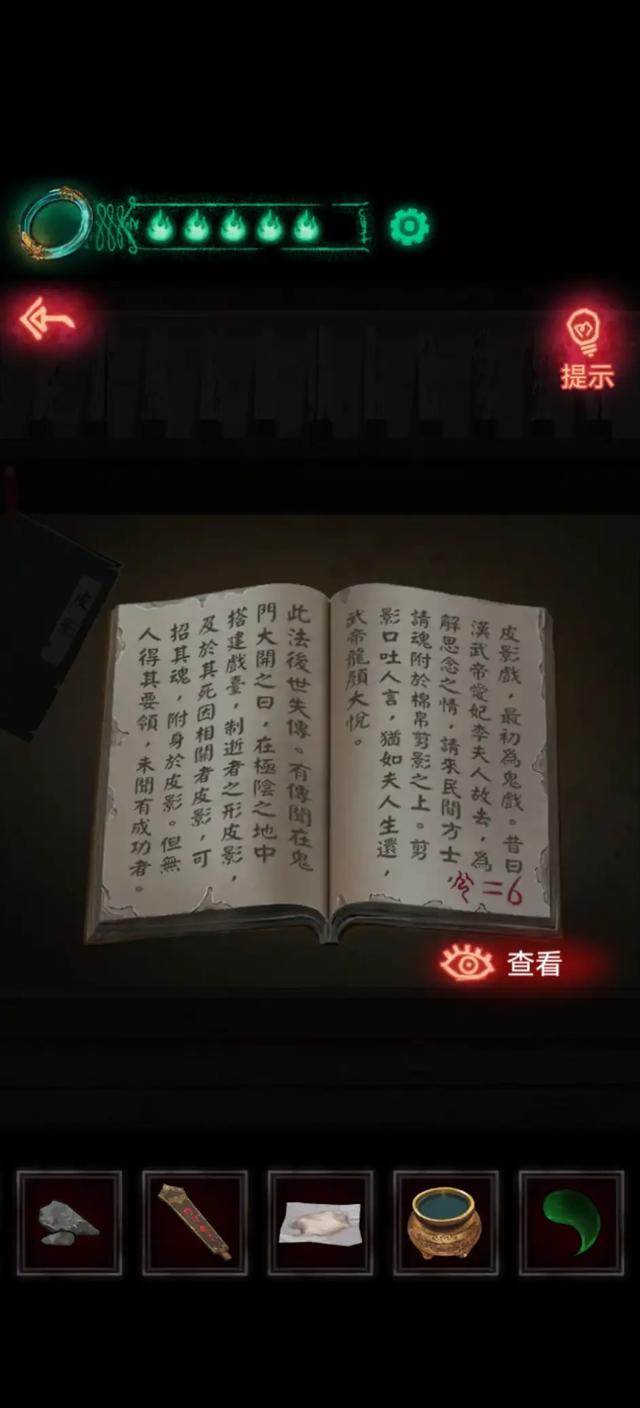 提示
皮影戲，最初為鬼戲。昔日
漢武帝愛妃李夫人故去，為
解思念之情，請來民間方士，
請魂附於棉帛剪影之上。剪
影口吐人言，猶如夫人生還，
武帝龍顏大悅。
=6
此法後世失傳。有傳聞在鬼
門大開之日，在極陰之地中
搭建戲臺，制逝者之形皮影，
及於其死因相關者皮影，可
招其魂，附身於皮影。但無
人得其要領，未聞有成功者。
皮影
查看